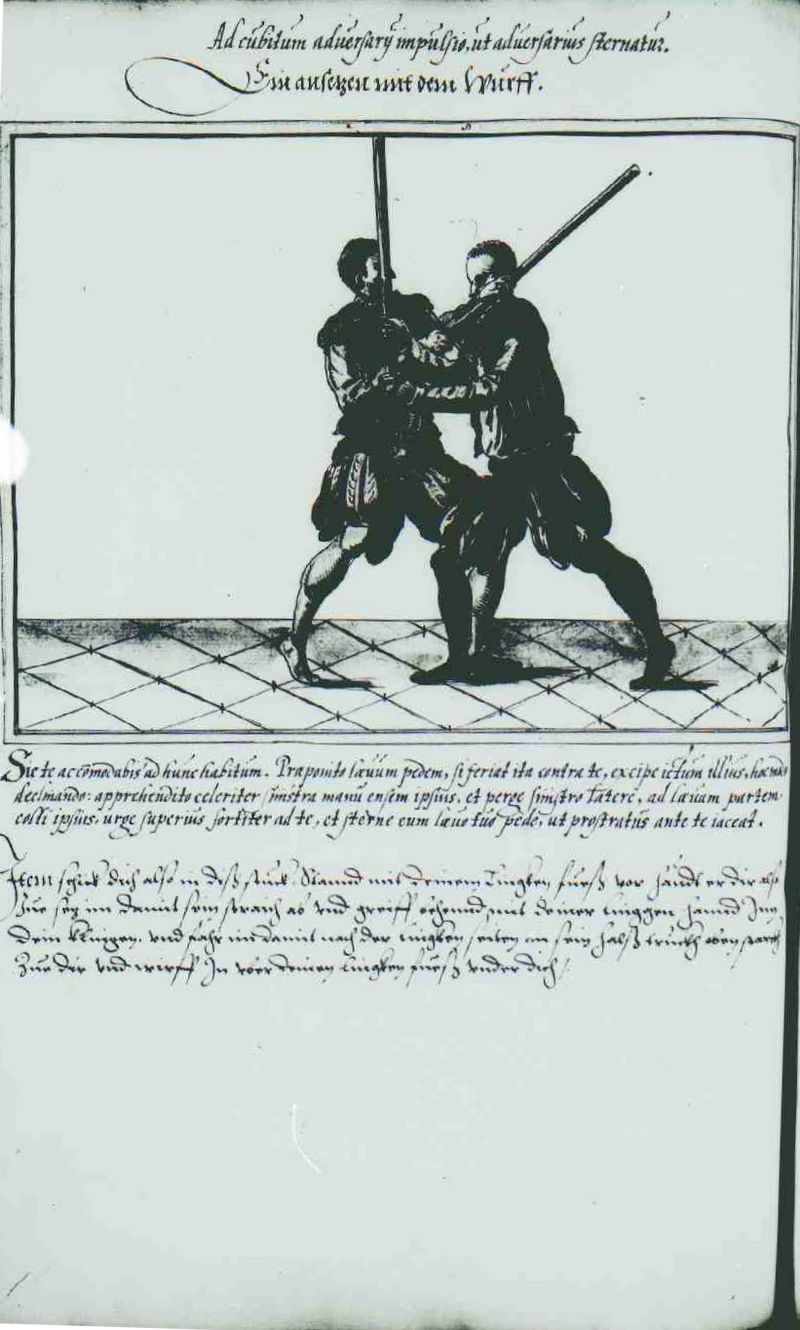 Ad cubitum adversarij impulsio, ut adversarius sternatur.
Ein ansetzen mit dem Wurff.
Sic te accõmodabis ad hunc habitum. Præposito lævum pedem, si feriat ita contra te, excipe ictum illius, hoc modo
declinando: apprehendito celeriter sinistra manu ensem ipsius, et perge sinistro latere, ad lævam partem
colli ipsius, urge superius fortiter ad te, et sterne eum lævo tuo pede, ut prostratus ante te iaceat.
Item schick dich also in diß stuck. Stannd mit deinem Lingken fuesß vor, haudt er dir also
Zue, setz im damit sein straich ab vnd greiff behennd mit deiner linggen hannd Inn
dein klingen, vnd fahr im damit nach der lingken seiten an sein halß truckh oben starckh
Zue dir vnd wirff In vber deinen lingken fuesß vnder dich